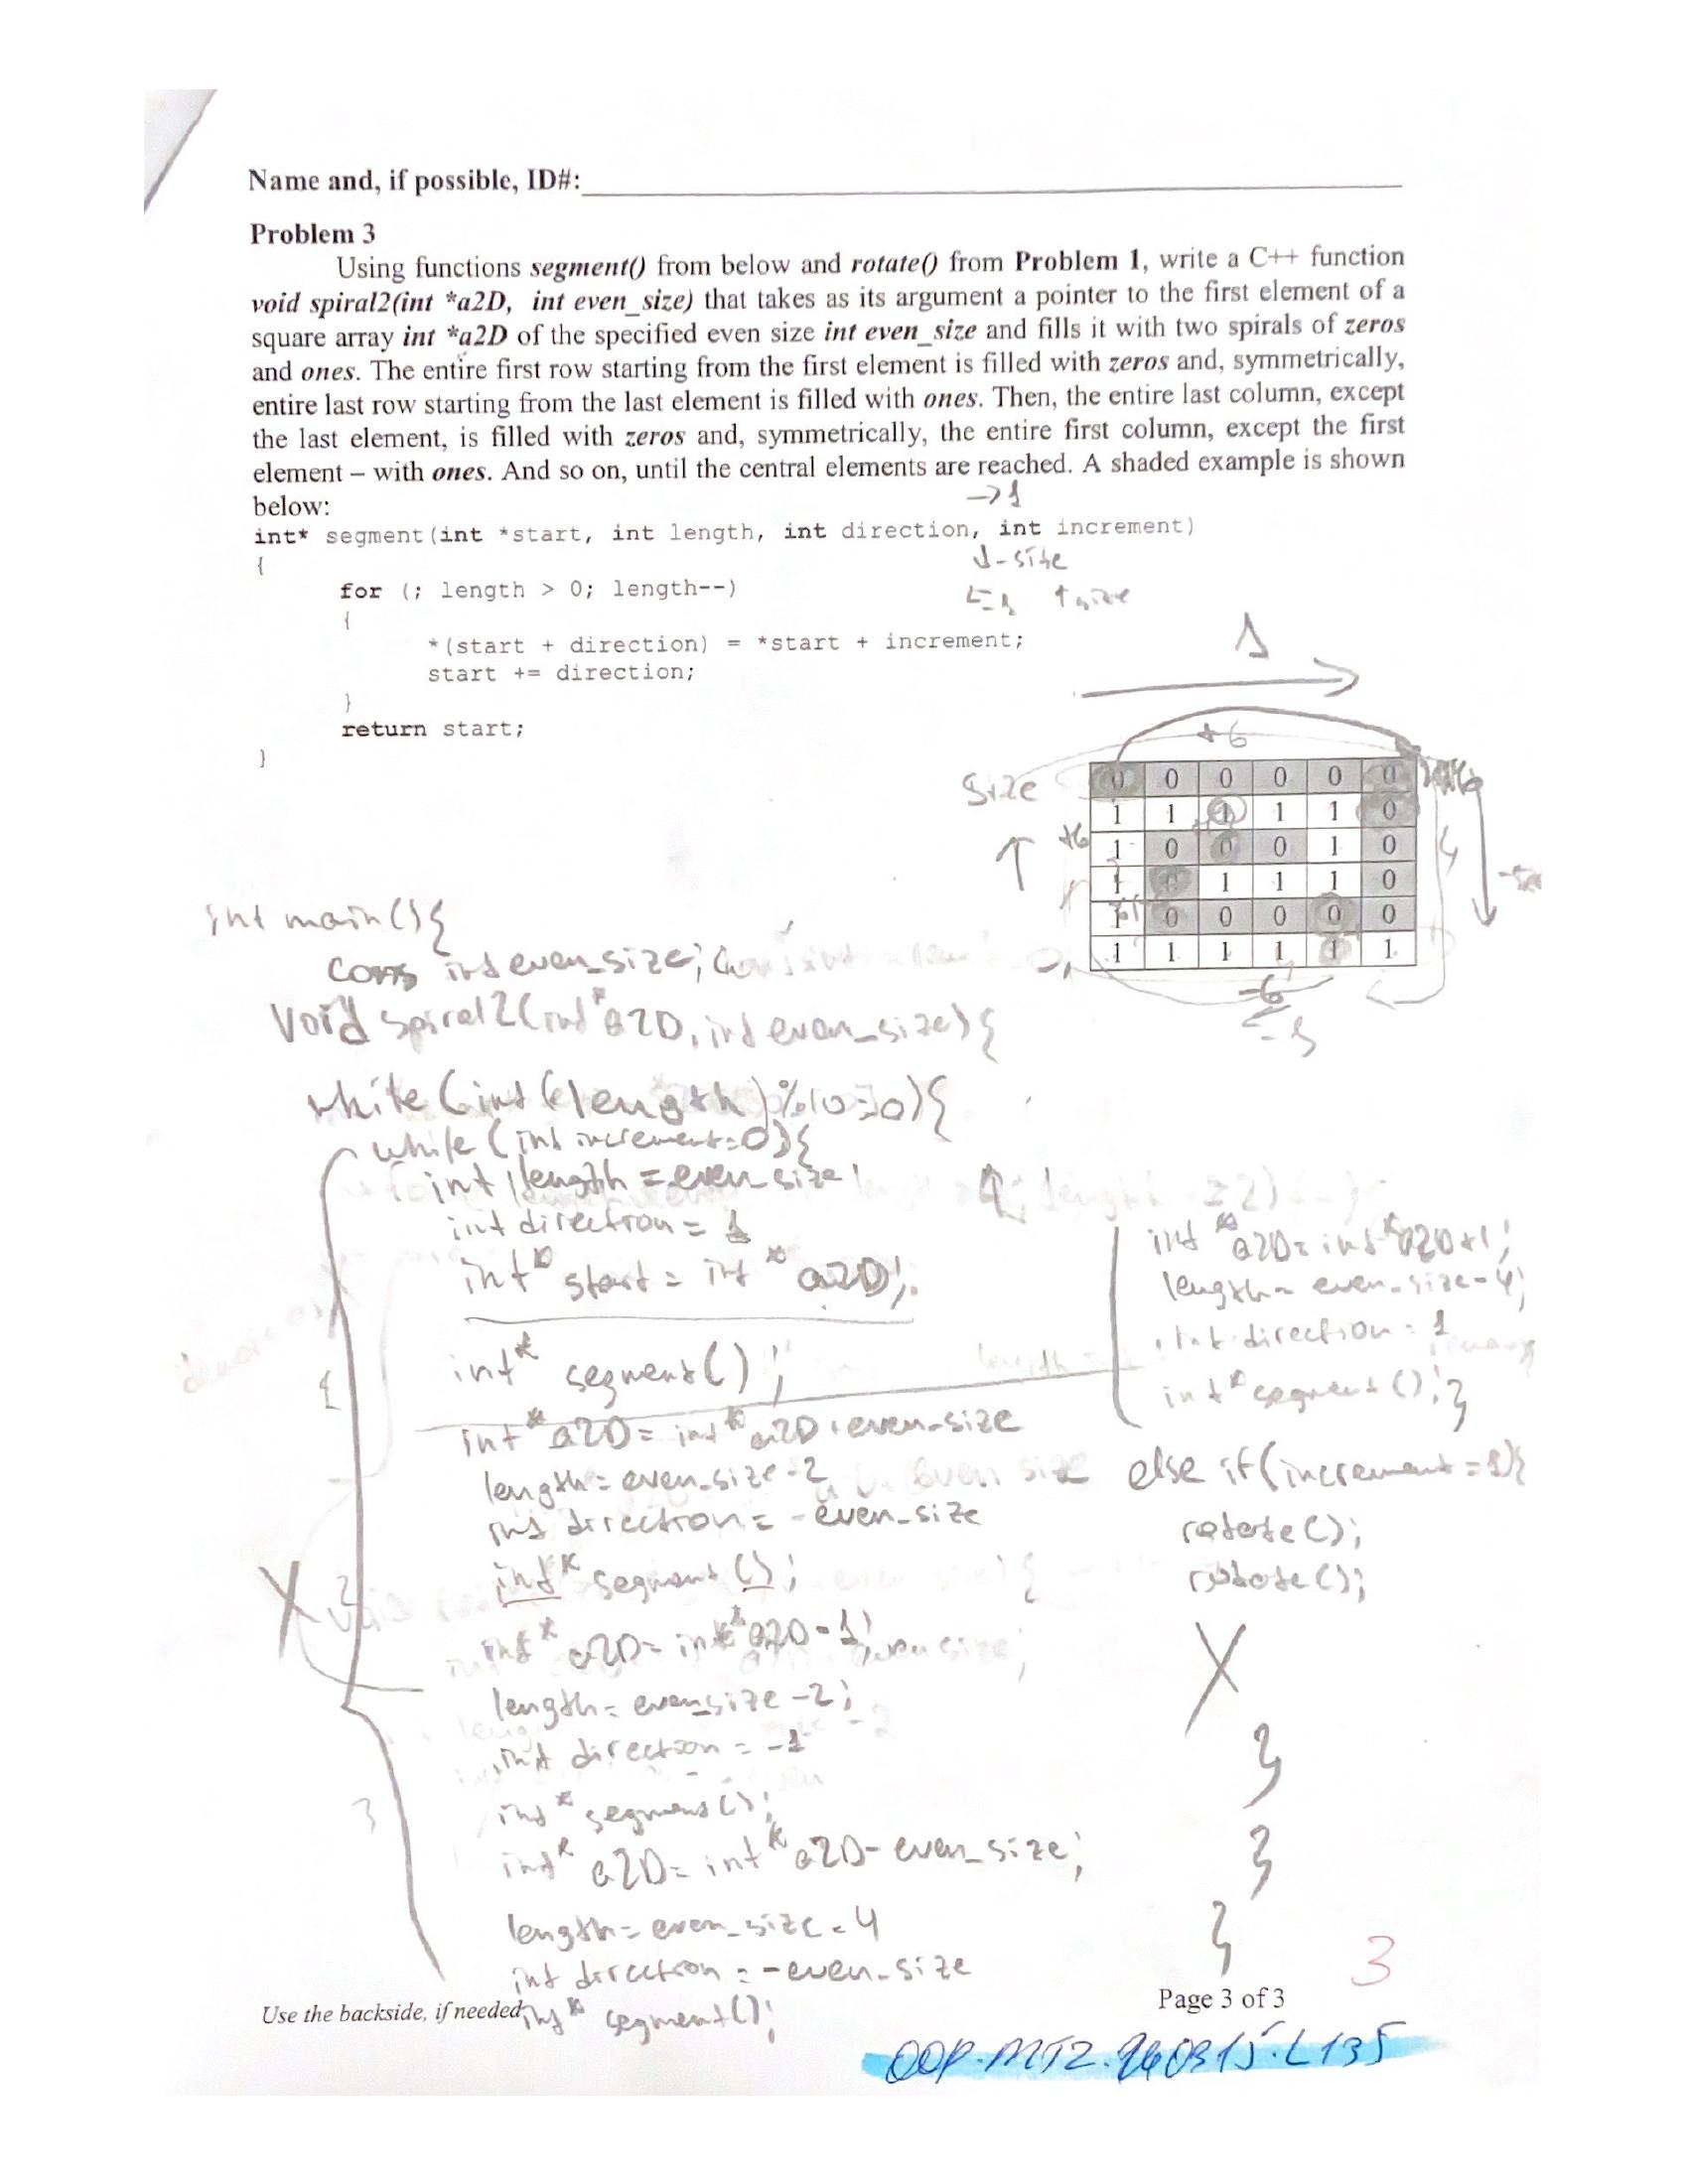 Name and, if possible, ID#:
Problem 3
Using functions segment() from below and rotate() from Problem 1, write a C++ function
void spiral2(int *a2D, int even_size) that takes as its argument a pointer to the first element of a
square array int *a2D of the specified even size int even_size and fills it with two spirals of zeros
and ones. The entire first row starting from the first element is filled with zeros and, symmetrically,
entire last row starting from the last element is filled with ones. Then, the entire last column, except
the last element, is filled with zeros and, symmetrically, the entire first column, except the first
element – with ones. And so on, until the central elements are reached. A shaded example is shown
below:
→1
int* segment(int *start, int length, int direction, int increment)
{
↓-size
for (; length > 0; length--)
↑size
{
*(start + direction) = *start + increment;
start += direction;
}
return start;
}
1
+6
Size
0 0 0 0 0 0
1 1 1 1 1 0
1 0 0 0 1 0
1 0 1 1 1 0
1 0 0 0 0 0
1 1 1 1 1 1
+6
-6
int main(){
cons int even_size;
void spiral2(int *a2D, int even_size){
while (int (length)%10=0){
while (int increment=0){
int length = even_size
int direction = 1
int* start = int *a2D;
int* segment();
int* a2D = int* a2D+even-size
length = even_size-2
int direction = -even_size
int* segment();
int* a2D = int* a2D-1;
length = even_size-2;
int direction = -1
int* segment();
int* a2D = int* a2D-even_size;
length = even_size-4
int direction = -even-size
int* segment();
int *a2D = int *a2D+1;
length = even-size-4;
int direction = 1
int* segment();}
else if(increment=1){
rotate();
rotate();
X
}
}
}
X
1
2
3
3
Use the backside, if needed
Page 3 of 3
OOP.MT2.240315.L135